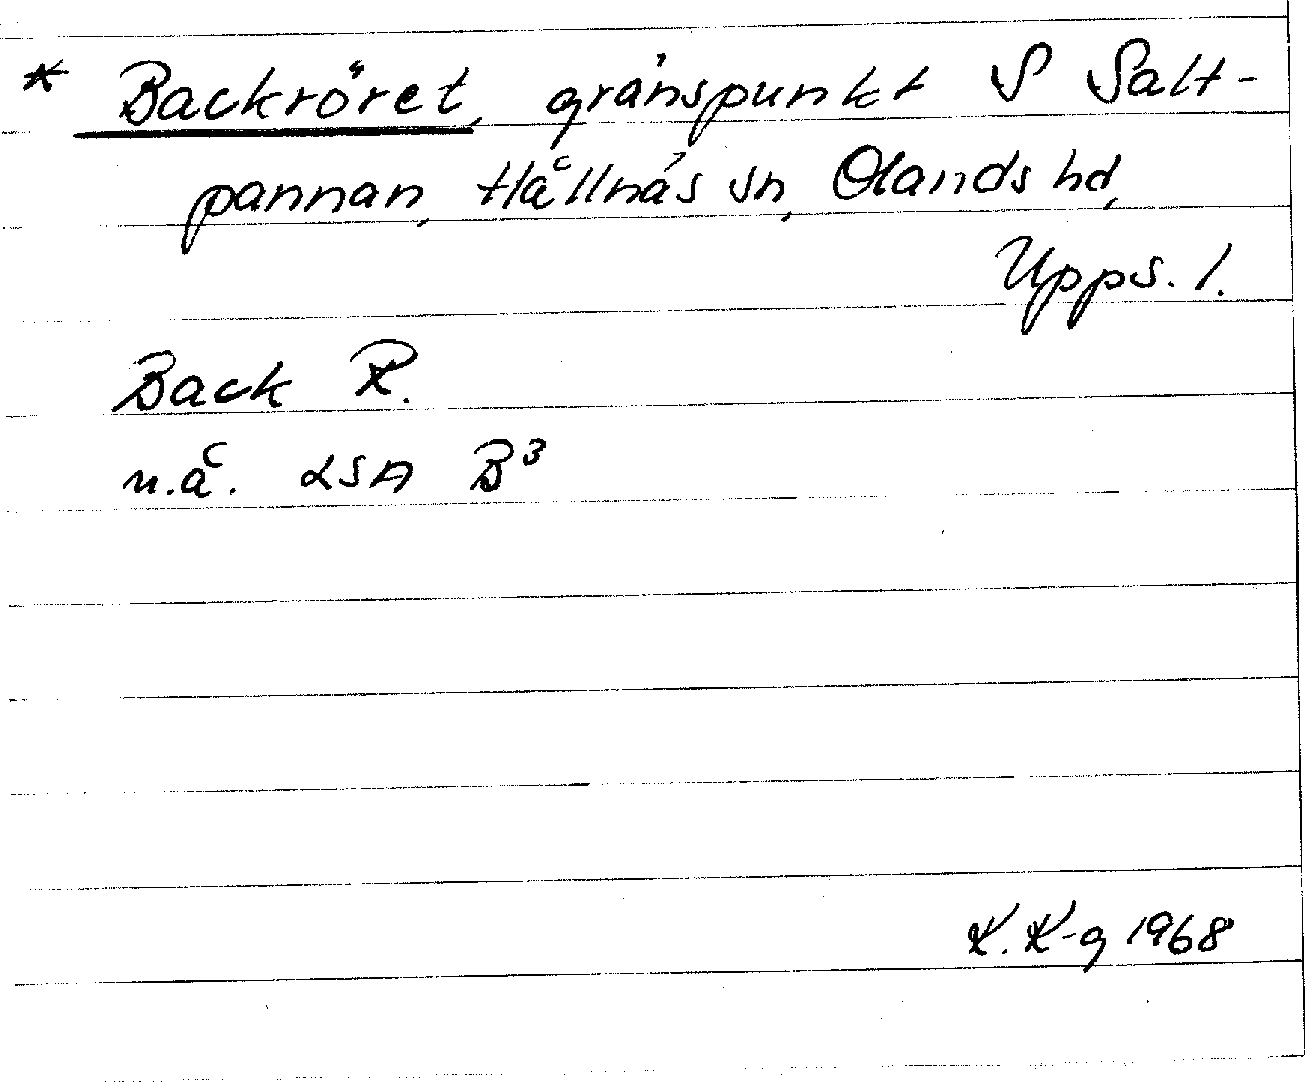 * Backröret, gränspunkt S Salt-
pannan, Hållnäs sn, Olands hd,
Upps. l.
Back R.
n.å. LSA B³
K. K-g 1968